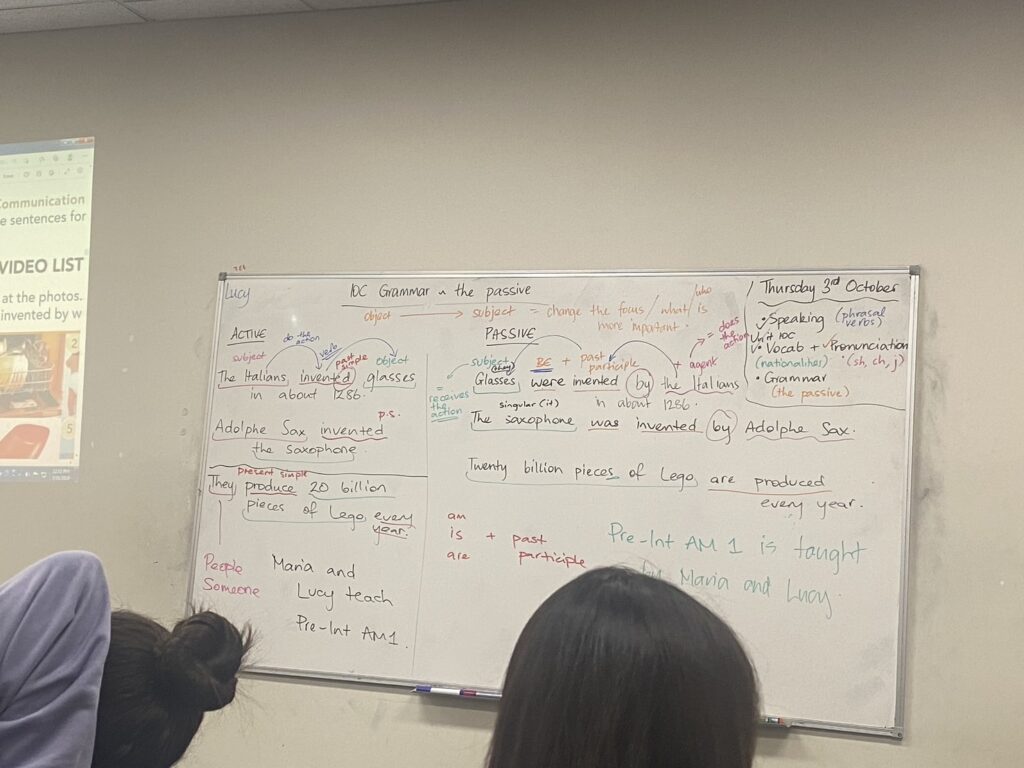 Communication
e sentences for
VIDEO LIST
at the photos.
invented by w
5
Lucy
10C Grammar ~ the passive
object → subject = change the focus / what / who is
more important.
ACTIVE
do the action
subject
verb
past simple
object
The Italians invented glasses
in about 1286.
p.s.
Adolphe Sax invented
the saxophone.
present simple
They produce 20 billion
pieces of Lego every
year.
People
Someone
Maria and
Lucy teach
Pre-Int AM1.
PASSIVE
= does the action
subject
BE + past participle
+ agent
= receives the action
(they)
Glasses were invented by the Italians
in about 1286.
singular (it)
The saxophone was invented by Adolphe Sax.
Twenty billion pieces of Lego are produced
every year.
am
is + past
are participle
Pre-Int AM 1 is taught
by Maria and Lucy.
Thursday 3rd October
Speaking (phrasal verbs)
Unit 10C
Vocab + Pronunciation
(nationalities) (sh, ch, j)
Grammar
(the passive)